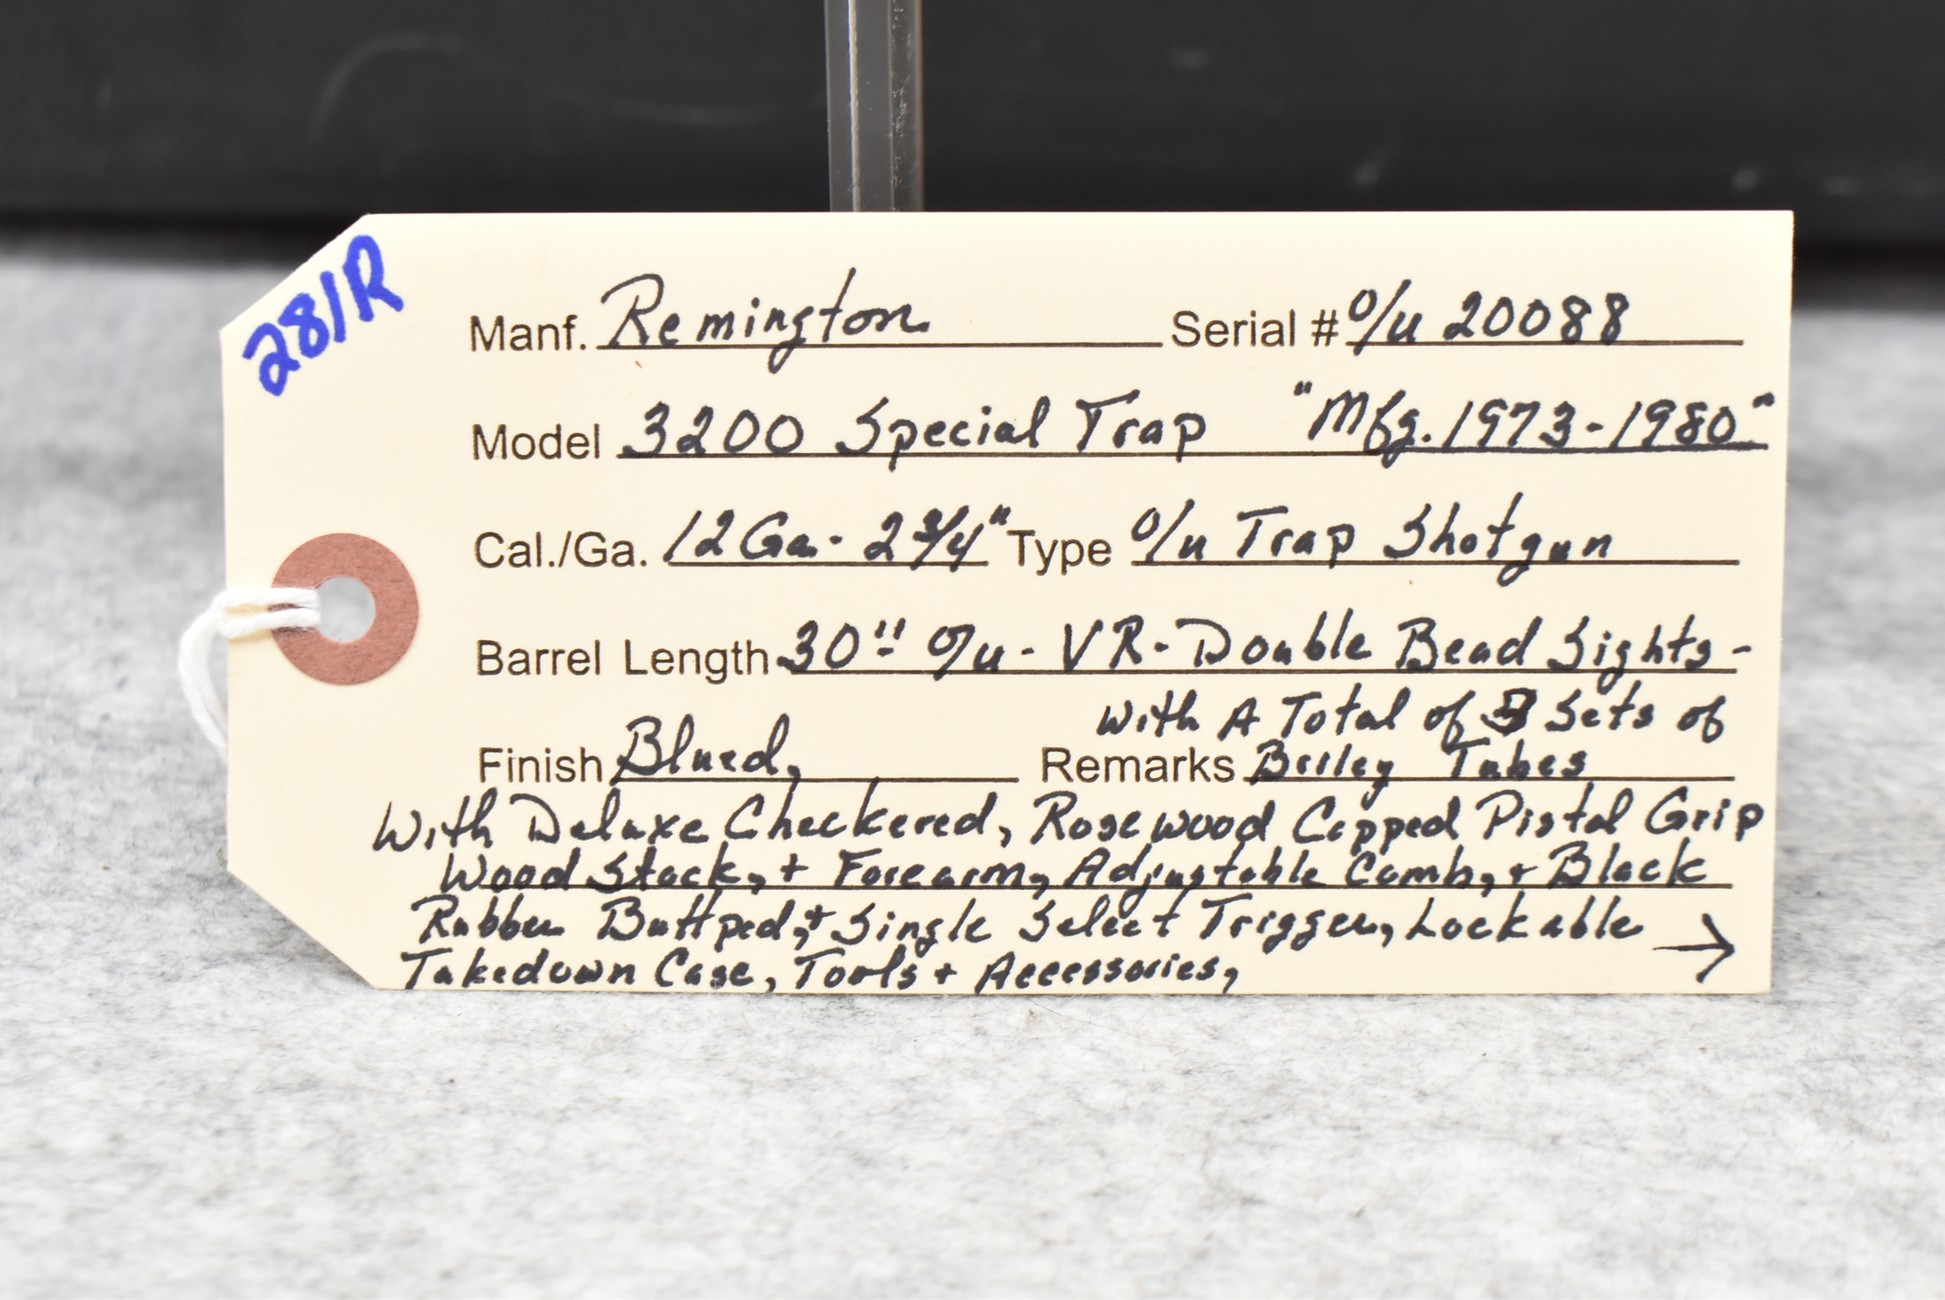 281R
Manf. Remington Serial # O/u 20088
Model 3200 Special Trap "Mfg. 1973-1980"
Cal./Ga. 12 Ga. - 2 3/4" Type O/u Trap Shotgun
Barrel Length 30" O/u - VR - Double Bead Sights -
With A Total of Sets of
Finish Blued, Remarks Briley Tubes
With Deluxe Checkered, Rosewood Capped Pistol Grip
Wood Stock, + Forearm, Adjustable Comb, + Black
Rubber Buttpad, + Single Select Trigger, Lockable
Takedown Case, Tools + Accessories, →